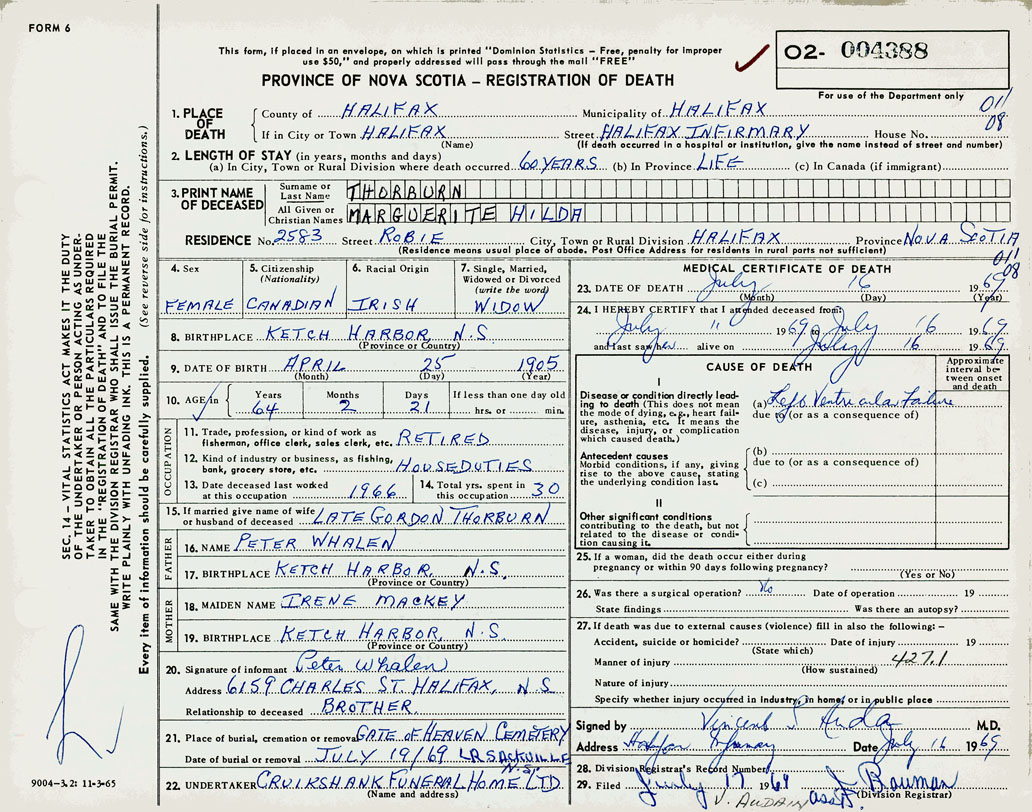 FORM 6
This form, if placed in an envelope, on which is printed "Dominion Statistics – Free, penalty for improper
use $50," and properly addressed will pass through the mail "FREE"
PROVINCE OF NOVA SCOTIA – REGISTRATION OF DEATH
02- 004388
For use of the Department only
011
08
1. PLACE OF DEATH
County of HALIFAX Municipality of HALIFAX
If in City or Town HALIFAX Street HALIFAX INFIRMARY House No.
(Name) (If death occurred in a hospital or institution, give the name instead of street and number)
2. LENGTH OF STAY (in years, months and days)
(a) In City, Town or Rural Division where death occurred 60 YEARS (b) In Province LIFE (c) In Canada (if immigrant)
3. PRINT NAME OF DECEASED
Surname or Last Name THORBURN
All Given or Christian Names MARGUERITE HILDA
RESIDENCE No. 2583 Street ROBIE City, Town or Rural Division HALIFAX Province NOVA SCOTIA
(Residence means usual place of abode. Post Office Address for residents in rural parts not sufficient)
011
08
4. Sex FEMALE
5. Citizenship (Nationality) CANADIAN
6. Racial Origin IRISH
7. Single, Married, Widowed or Divorced (write the word) WIDOW
8. BIRTHPLACE KETCH HARBOR, N.S.
(Province or Country)
9. DATE OF BIRTH APRIL 25 1905
(Month) (Day) (Year)
10. AGE in Years Months Days If less than one day old
64 2 21 hrs. or min.
OCCUPATION
11. Trade, profession, or kind of work as
fisherman, office clerk, sales clerk, etc. RETIRED
12. Kind of industry or business, as fishing,
bank, grocery store, etc. HOUSEDUTIES
13. Date deceased last worked
at this occupation 1966
14. Total yrs. spent in
this occupation 30
15. If married give name of wife
or husband of deceased LATE GORDON THORBURN
FATHER
16. NAME PETER WHALEN
17. BIRTHPLACE KETCH HARBOR, N.S.
(Province or Country)
MOTHER
18. MAIDEN NAME IRENE MACKEY
19. BIRTHPLACE KETCH HARBOR, N.S.
(Province or Country)
20. Signature of informant Peter Whalen
Address 6159 CHARLES ST. HALIFAX, N.S
Relationship to deceased BROTHER
21. Place of burial, cremation or removal GATE OF HEAVEN CEMETERY
Date of burial or removal JULY 19/69 LR. SACKVILLE
N.S.
22. UNDERTAKER CRUIKSHANK FUNERAL HOME LTD.
(Name and address)
MEDICAL CERTIFICATE OF DEATH
23. DATE OF DEATH July 16 1969
(Month) (Day) (Year)
24. I HEREBY CERTIFY that I attended deceased from:
July " 1969 to July 16 1969
and last saw her alive on July 16 1969
CAUSE OF DEATH
Approximate interval between onset and death
I
Disease or condition directly leading to death (This does not mean the mode of dying, e.g., heart failure, asthenia, etc. It means the disease, injury, or complication which caused death.)
(a) Left Ventricular Failure
due to (or as a consequence of)
Antecedent causes
Morbid conditions, if any, giving rise to the above cause, stating the underlying condition last.
(b)
due to (or as a consequence of)
(c)
II
Other significant conditions
contributing to the death, but not related to the disease or condition causing it.
25. If a woman, did the death occur either during
pregnancy or within 90 days following pregnancy?
(Yes or No)
26. Was there a surgical operation? No Date of operation 19
State findings Was there an autopsy?
27. If death was due to external causes (violence) fill in also the following: –
Accident, suicide or homicide? Date of injury 19
(State which)
Manner of injury 427.1
(How sustained)
Nature of injury
Specify whether injury occurred in industry, in home, or in public place
Signed by Vincent M.D.
Address Date July 16 1969
28. Division Registrar's Record Number
29. Filed July 17 1969 asst. Bauman
(Division Registrar)
V. AUDAIN
SEC. 14 – VITAL STATISTICS ACT MAKES IT THE DUTY
OF THE UNDERTAKER OR PERSON ACTING AS UNDER-
TAKER TO OBTAIN ALL THE PARTICULARS REQUIRED
IN THE "REGISTRATION OF DEATH" AND TO FILE THE
SAME WITH THE DIVISION REGISTRAR WHO SHALL ISSUE THE BURIAL PERMIT.
WRITE PLAINLY WITH UNFADING INK. THIS IS A PERMANENT RECORD.
Every item of information should be carefully supplied. (See reverse side for instructions.)
9004–3.2: 11-3-65